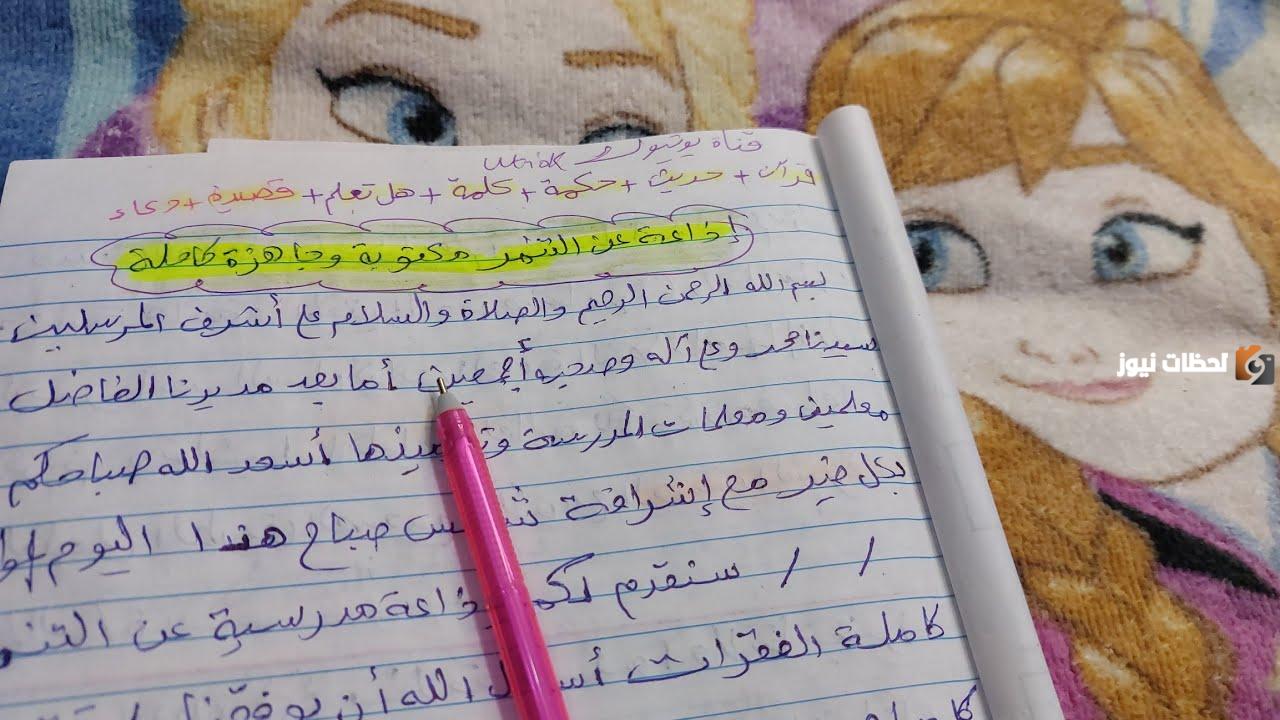 قناة يوتيوب
قرآن + حديث + حكمة + كلمة + هل تعلم + قصيدة + دعاء
إذاعة عن التنمر مكتوبة وجاهزة كاملة
بسم الله الرحمن الرحيم والصلاة والسلام على أشرف المرسلين
سيدنا محمد وعلى آله وصحبه أجمعين أما بعد مديرنا الفاضل
معلمين ومعلمات المدرسة أسعد الله صباحكم
بكل خير مع إشراقة شمس صباح هذا اليوم
/ / سنقدم لكم إذاعة مدرسية عن
كاملة الفقرات الله أن
لحظات نيوز